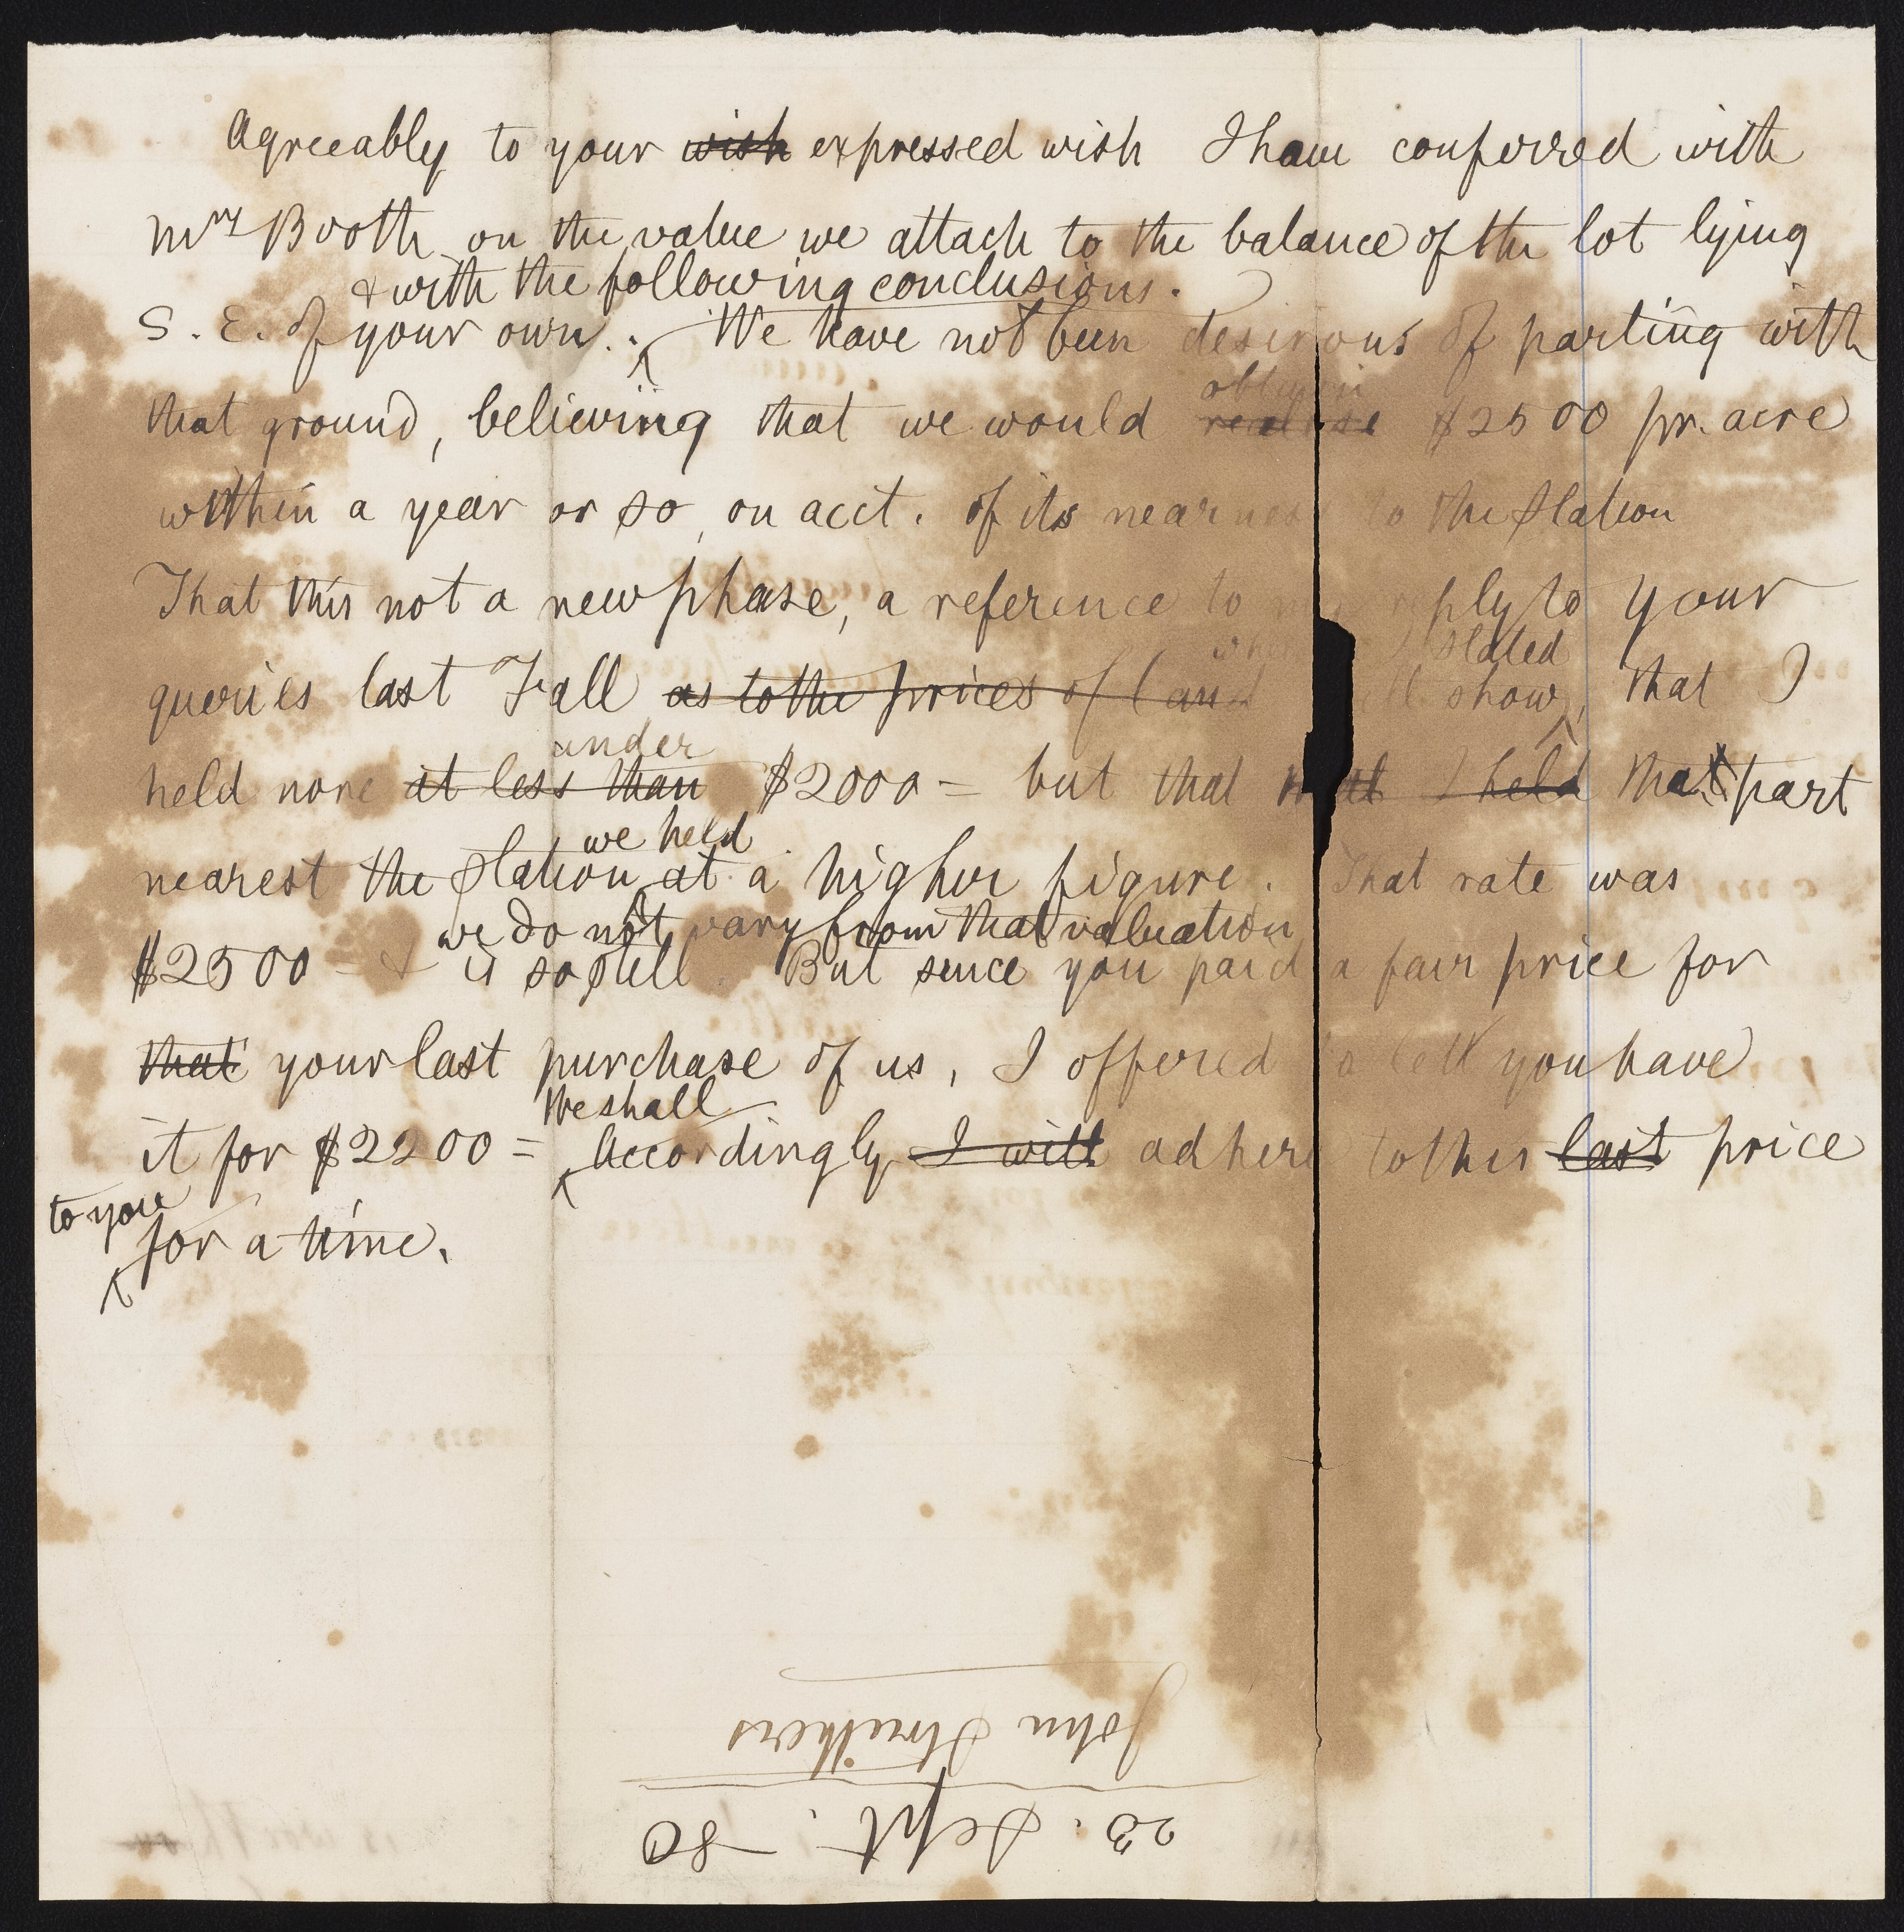 Agreeably to your wish expressed wish I have conferred with
Mrs Booth on the value we attach to the balance of the lot lying
& with the following conclusions.
S. E. of your own. We have not been desirous of parting with
obtain
that ground, believing that we would realise $2500 pr. acre
within a year or so, on acct. of its nearness to the station
That this not a new phase, a reference to my reply to your
when I stated
queries last Fall as to the prices of land will show, that I
under
held none at less than $2000 = but that I held that part
we held
nearest the station at a higher figure. That rate was
we do not vary from that valuation
$2500 - & is so still. But since you paid a fair price for
that your last purchase of us, I offered to let you have
We shall
it for $2200 = Accordingly I will adhere to this last price
to you
for a time.
23. Sept. - 80
John Struthers